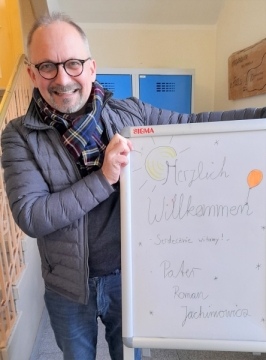 SIGMA
Herzlich
Willkommen
- Serdecznie witamy! -
Pater
Roman
Jachimowicz